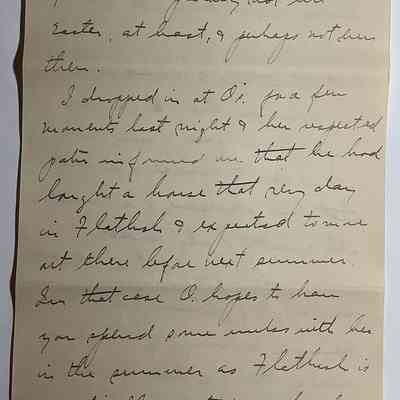 Easter, at least, & perhaps not even
then.
I dropped in at O's. for a few
moments last night & her respected
pater informed me that he had
bought a house that very day
in Flatbush & expected to move
out there before next summer.
In that case O. hopes to have
you spend some weeks with her
in the summer as Flatbush is